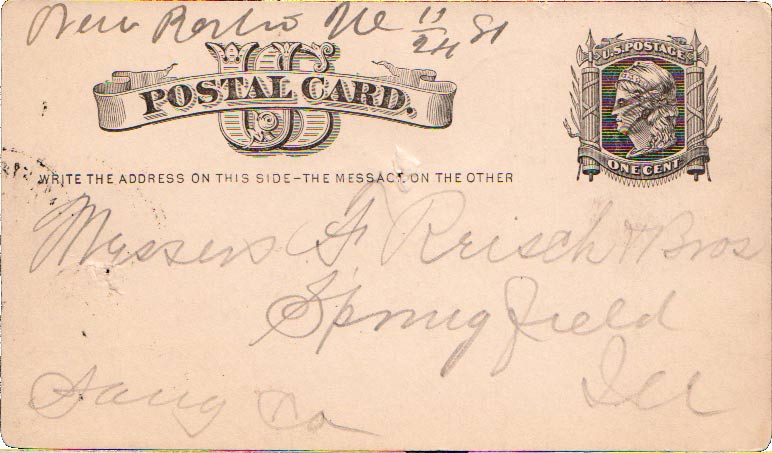 New Berlin Ill 11/24 81
U.S. POSTAGE
US
POSTAL CARD.
ONE CENT
WRITE THE ADDRESS ON THIS SIDE-THE MESSAGE ON THE OTHER
Myssers F Reisch & Bros
Springfield
Ill
Sang Co